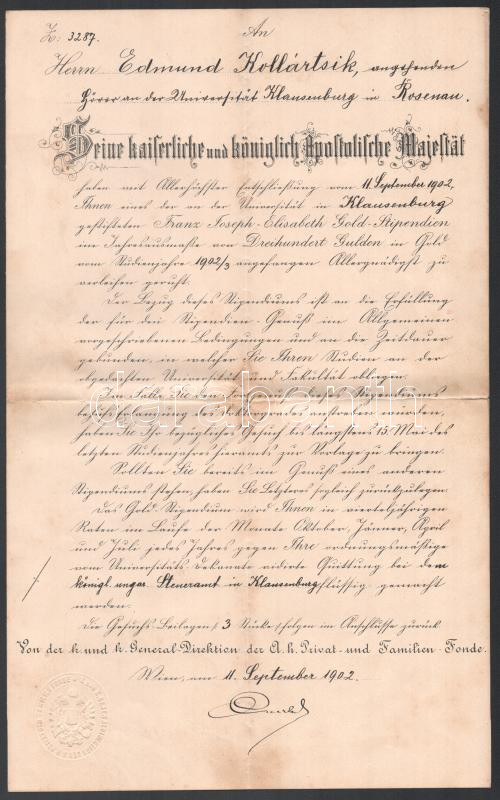 Z: 3287.
An
Herrn Edmund Kollártsik, angehenden
Hörer an der Universität Klausenburg in Rosenau.
Seine kaiserliche und königlich Apostolische Majestät
haben mit Allerhöchster Entschließung vom 11. September 1902,
Ihnen eines der an der Universität in Klausenburg
gestifteten Franz Joseph-Elisabeth Gold-Stipendien
im Jahresausmaße von Dreihundert Gulden in Gold
vom Studienjahre 1902/3 angefangen Allergnädigst zu
verleihen geruht.
Der Bezug dieses Stipendiums ist an die Erfüllung
der für den Stipendien-Genuß im Allgemeinen
vorgeschriebenen Bedingungen und an die Zeitdauer
gebunden, in welcher Sie Ihren Studien an der
obgedachten Universität und Fakultät obliegen.
Im Falle Sie den Fortgenuß dieses Stipendiums
behufs Erlangung des Doktorgrades anstreben würden,
haben Sie Ihr bezügliches Gesuch bis längstens 15. Mai des
letzten Studienjahres hieramts zur Vorlage zu bringen.
Sollten Sie bereits im Genuß eines anderen
Stipendiums stehen, haben Sie Letzteres sogleich zurückzulegen.
Das Gold-Stipendium wird Ihnen in vierteljährigen
Raten im Laufe der Monate Oktober, Jänner, April
und Juli jedes Jahres gegen Ihre ordnungsmäßige
vom Universitäts-Dekanate vidierte Quittung bei dem
königl. ungar. Steueramt in Klausenburg flüssig gemacht
werden.
Die Gesuchs-Beilagen / 3 Stücke / folgen im Anschlusse zurück.
Von der k. und k. General-Direktion der A. h. Privat- und Familien-Fonde.
Wien, am 11. September 1902.
darabanth.com